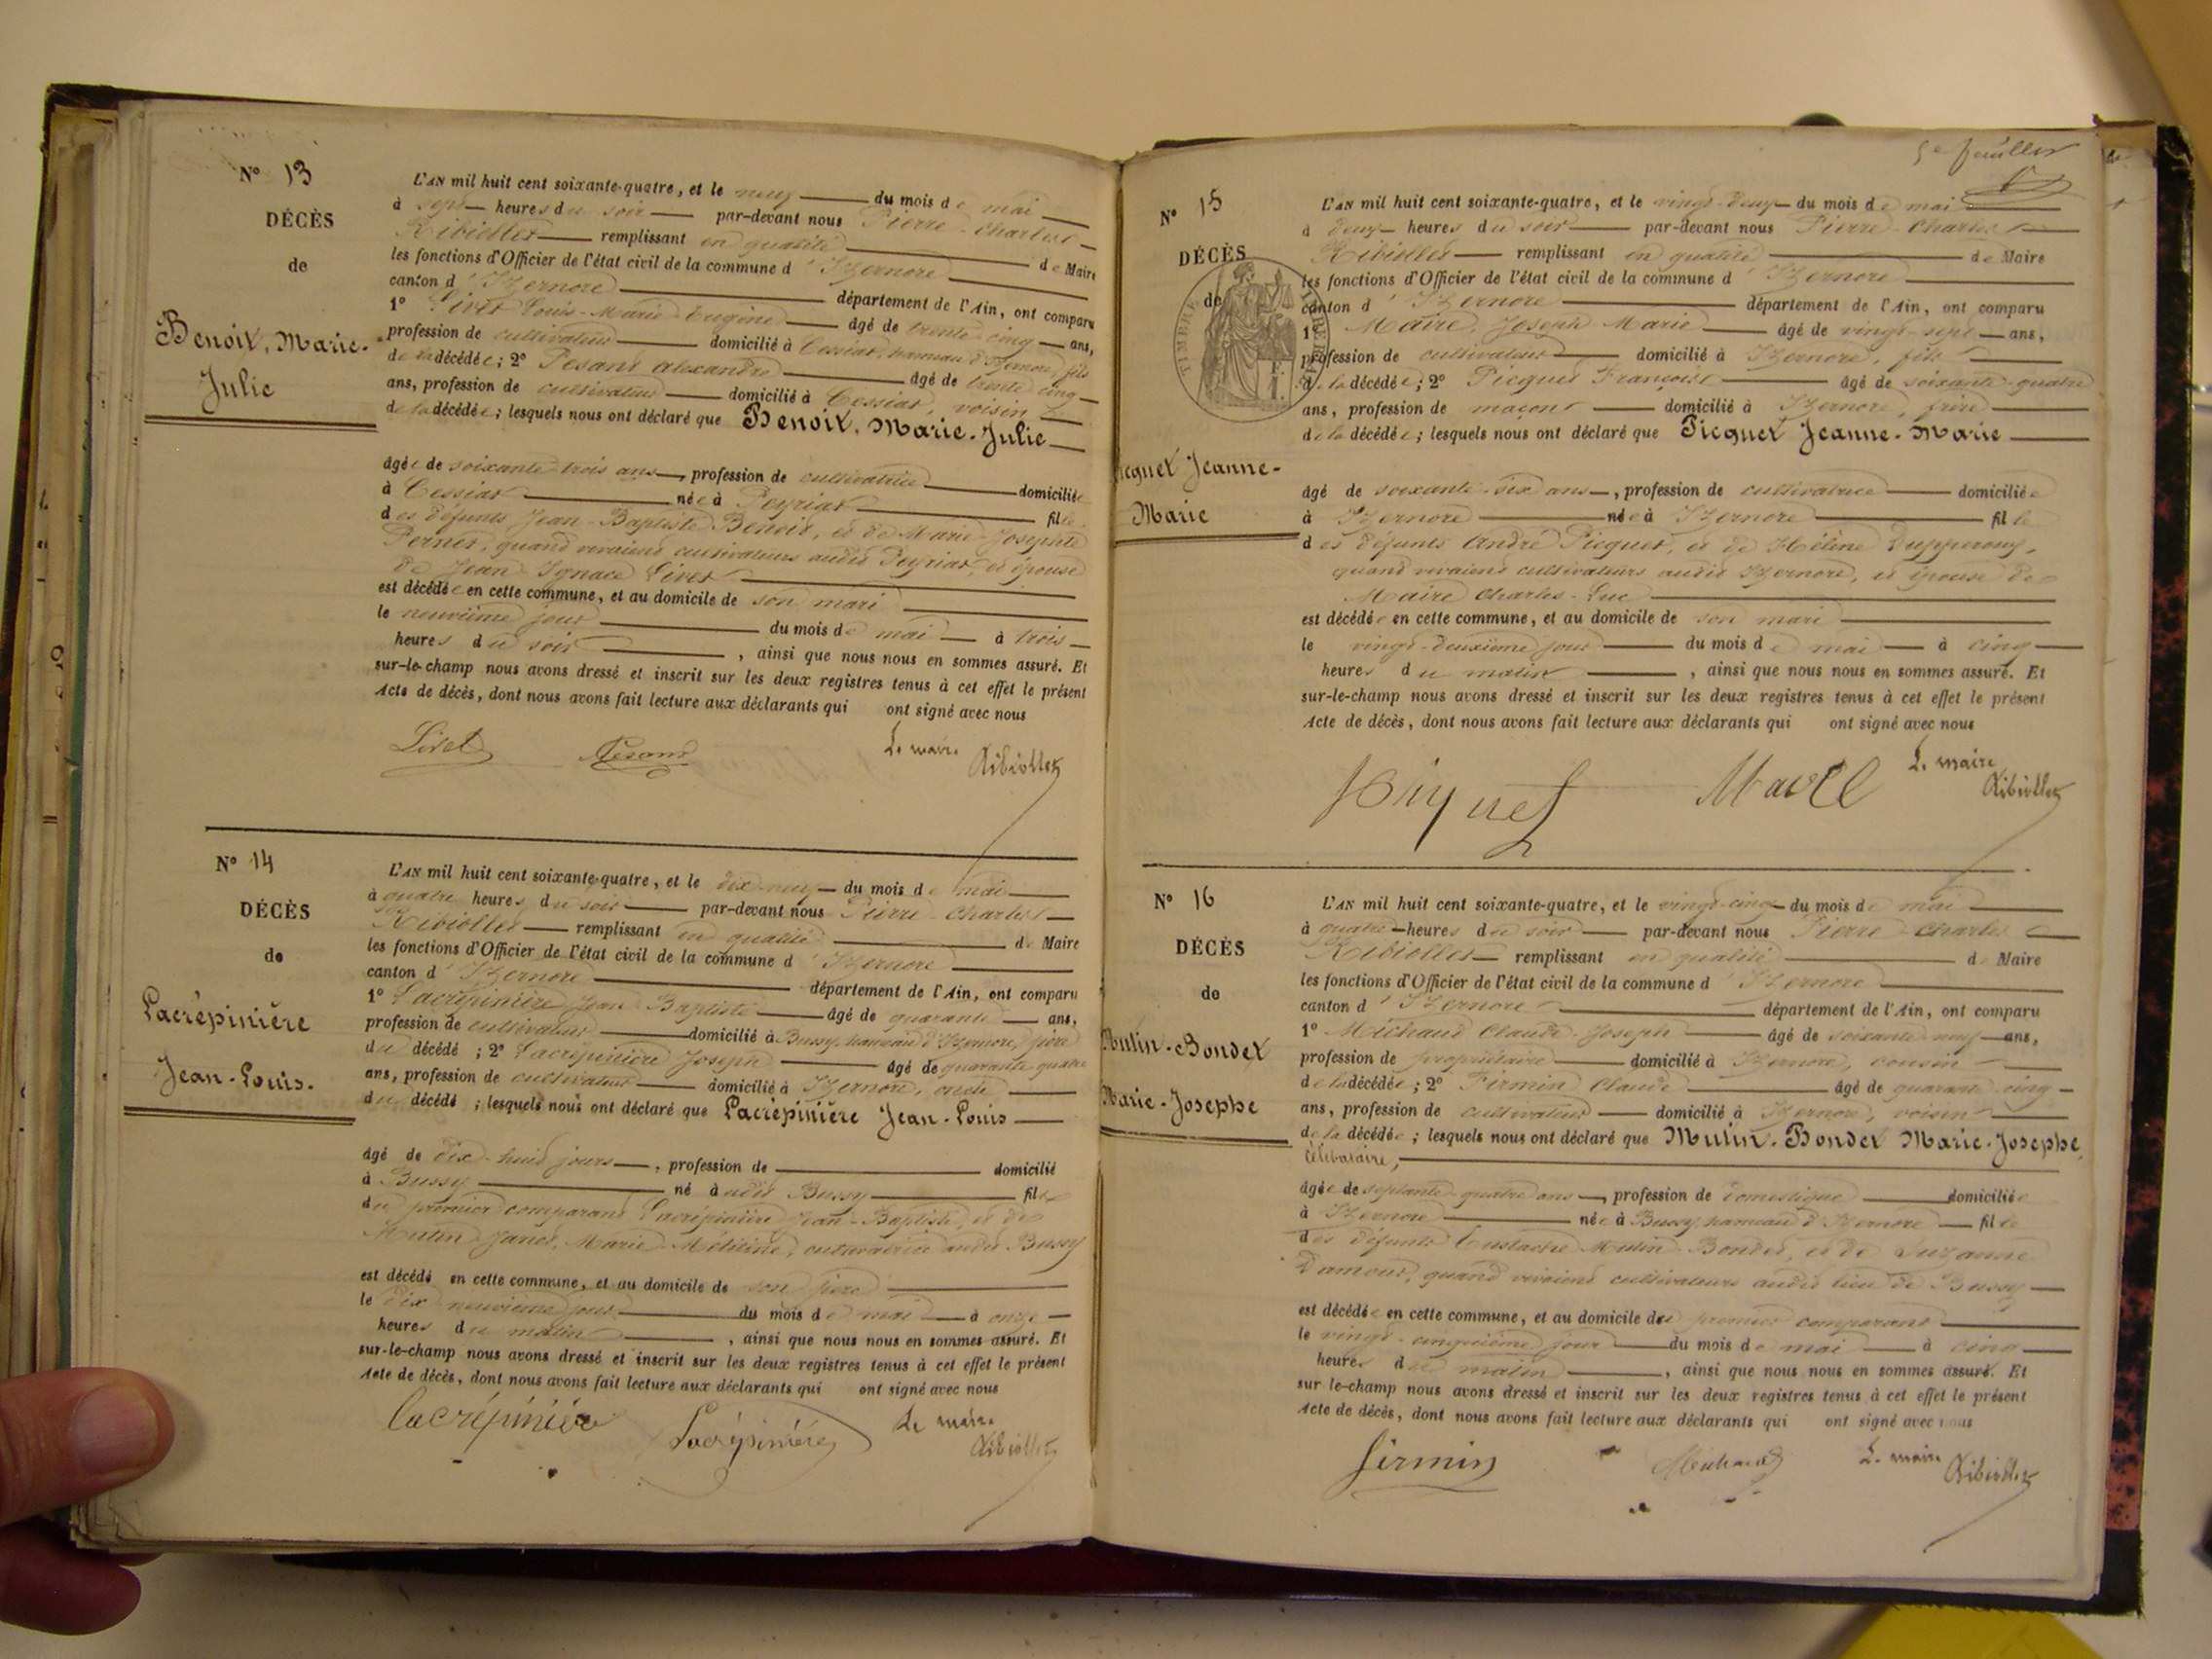 N° 13
DÉCÈS
de
Benoit, Marie-
Julie
L'AN mil huit cent soixante-quatre, et le neuf du mois de mai
à sept heures du soir par-devant nous Pierre-Charles
Ribiollet remplissant en qualité de Maire
les fonctions d'Officier de l'état civil de la commune d'Izernore
canton d'Izernore département de l'Ain, ont comparu
1° Livet Louis-Marie Eugène âgé de trente-cinq ans,
profession de cultivateur domicilié à Cessiat, hameau d'Izernore, fils
de la décédée; 2° Pesant Alexandre âgé de trente cinq
ans, profession de cultivateur domicilié à Cessiat, voisin
de la décédée; lesquels nous ont déclaré que Benoit, Marie-Julie
âgée de soixante-trois ans, profession de cultivatrice domiciliée
à Cessiat née à Peyriat fille
des défunts Jean-Baptiste Benoit, et de Marie-Josephte
Pernet, quand vivaient cultivateurs audit Peyriat, et épouse
de Jean Ignace Livet
est décédée en cette commune, et au domicile de son mari
le neuvième jour du mois de mai à trois
heures du soir, ainsi que nous nous en sommes assuré. Et
sur-le-champ nous avons dressé et inscrit sur les deux registres tenus à cet effet le présent
Acte de décès, dont nous avons fait lecture aux déclarants qui ont signé avec nous
Livet Pesant Le maire
Ribiollet
N° 14
DÉCÈS
de
Lacrépinière
Jean-Louis.
L'AN mil huit cent soixante-quatre, et le dix-neuf du mois de mai
à quatre heures du soir par-devant nous Pierre-Charles
Ribiollet remplissant en qualité de Maire
les fonctions d'Officier de l'état civil de la commune d'Izernore
canton d'Izernore département de l'Ain, ont comparu
1° Lacrépinière Jean-Baptiste âgé de quarante ans,
profession de cultivateur domicilié à Bussy, hameau d'Izernore, père
du décédé; 2° Lacrépinière Joseph âgé de quarante quatre
ans, profession de cultivateur domicilié à Izernore, oncle
du décédé; lesquels nous ont déclaré que Lacrépinière Jean-Louis
âgé de dix-huit jours, profession de domicilié
à Bussy né audit Bussy fils
du premier comparant Lacrépinière Jean-Baptiste, et de
Mutin Marie cultivatrice audit Bussy
est décédé en cette commune, et au domicile de son père
le dix neuvième jour du mois de mai à onze
heures du matin, ainsi que nous nous en sommes assuré. Et
sur-le-champ nous avons dressé et inscrit sur les deux registres tenus à cet effet le présent
Acte de décès, dont nous avons fait lecture aux déclarants qui ont signé avec nous
Lacrépinière Lacrépinière Le maire
Ribiollet
5e feuillet
N° 15
DÉCÈS
de
Picquet Jeanne-
Marie
L'AN mil huit cent soixante-quatre, et le vingt-deux du mois de mai
à deux heures du soir par-devant nous Pierre-Charles
Ribiollet remplissant en qualité de Maire
les fonctions d'Officier de l'état civil de la commune d'Izernore
canton d'Izernore département de l'Ain, ont comparu
1° Maire, Joseph Marie âgé de vingt-sept ans,
profession de cultivateur domicilié à Izernore, fils
de la décédée; 2° Picquet François âgé de soixante-quatre
ans, profession de maçon domicilié à Izernore, frère
de la décédée; lesquels nous ont déclaré que Picquet Jeanne-Marie
âgé de soixante-dix ans, profession de cultivatrice domiciliée
à Izernore née à Izernore fille
des défunts André Picquet, et de Hélène Dupperoux,
quand vivaient cultivateurs audit Izernore, et épouse de
Maire Charles-Luc
est décédée en cette commune, et au domicile de son mari
le vingt-deuxième jour du mois de mai à cinq
heures du matin, ainsi que nous nous en sommes assuré. Et
sur-le-champ nous avons dressé et inscrit sur les deux registres tenus à cet effet le présent
Acte de décès, dont nous avons fait lecture aux déclarants qui ont signé avec nous
Piquet Maire Le maire
Ribiollet
N° 16
DÉCÈS
de
Mutin-Bondet
Marie-Josephe
L'AN mil huit cent soixante-quatre, et le vingt-cinq du mois de mai
à quatre heures du soir par-devant nous Pierre-Charles
Ribiollet remplissant en qualité de Maire
les fonctions d'Officier de l'état civil de la commune d'Izernore
canton d'Izernore département de l'Ain, ont comparu
1° Michaud Claude-Joseph âgé de soixante-neuf ans,
profession de propriétaire domicilié à Izernore, cousin
de la décédée; 2° Firmin Claude âgé de quarante cinq
ans, profession de cultivateur domicilié à Izernore, voisin
de la décédée; lesquels nous ont déclaré que Mutin-Bondet Marie-Josephe,
célibataire,
âgée de septante quatre ans, profession de domestique domiciliée
à Izernore née à Bussy, hameau d'Izernore fille
des défunts Eustache Mutin-Bondet, et de Suzanne
Damour, quand vivaient cultivateurs audit lieu de Bussy
est décédée en cette commune, et au domicile du premier comparant
le vingt-cinquième jour du mois de mai à cinq
heures du matin, ainsi que nous nous en sommes assuré. Et
sur-le-champ nous avons dressé et inscrit sur les deux registres tenus à cet effet le présent
Acte de décès, dont nous avons fait lecture aux déclarants qui ont signé avec nous
Firmin Michaud Le maire
Ribiollet